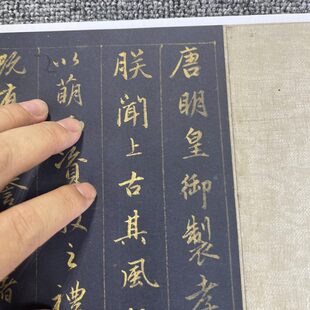 唐明皇御製孝
朕聞上古其風
以萌資敬之禮
既有